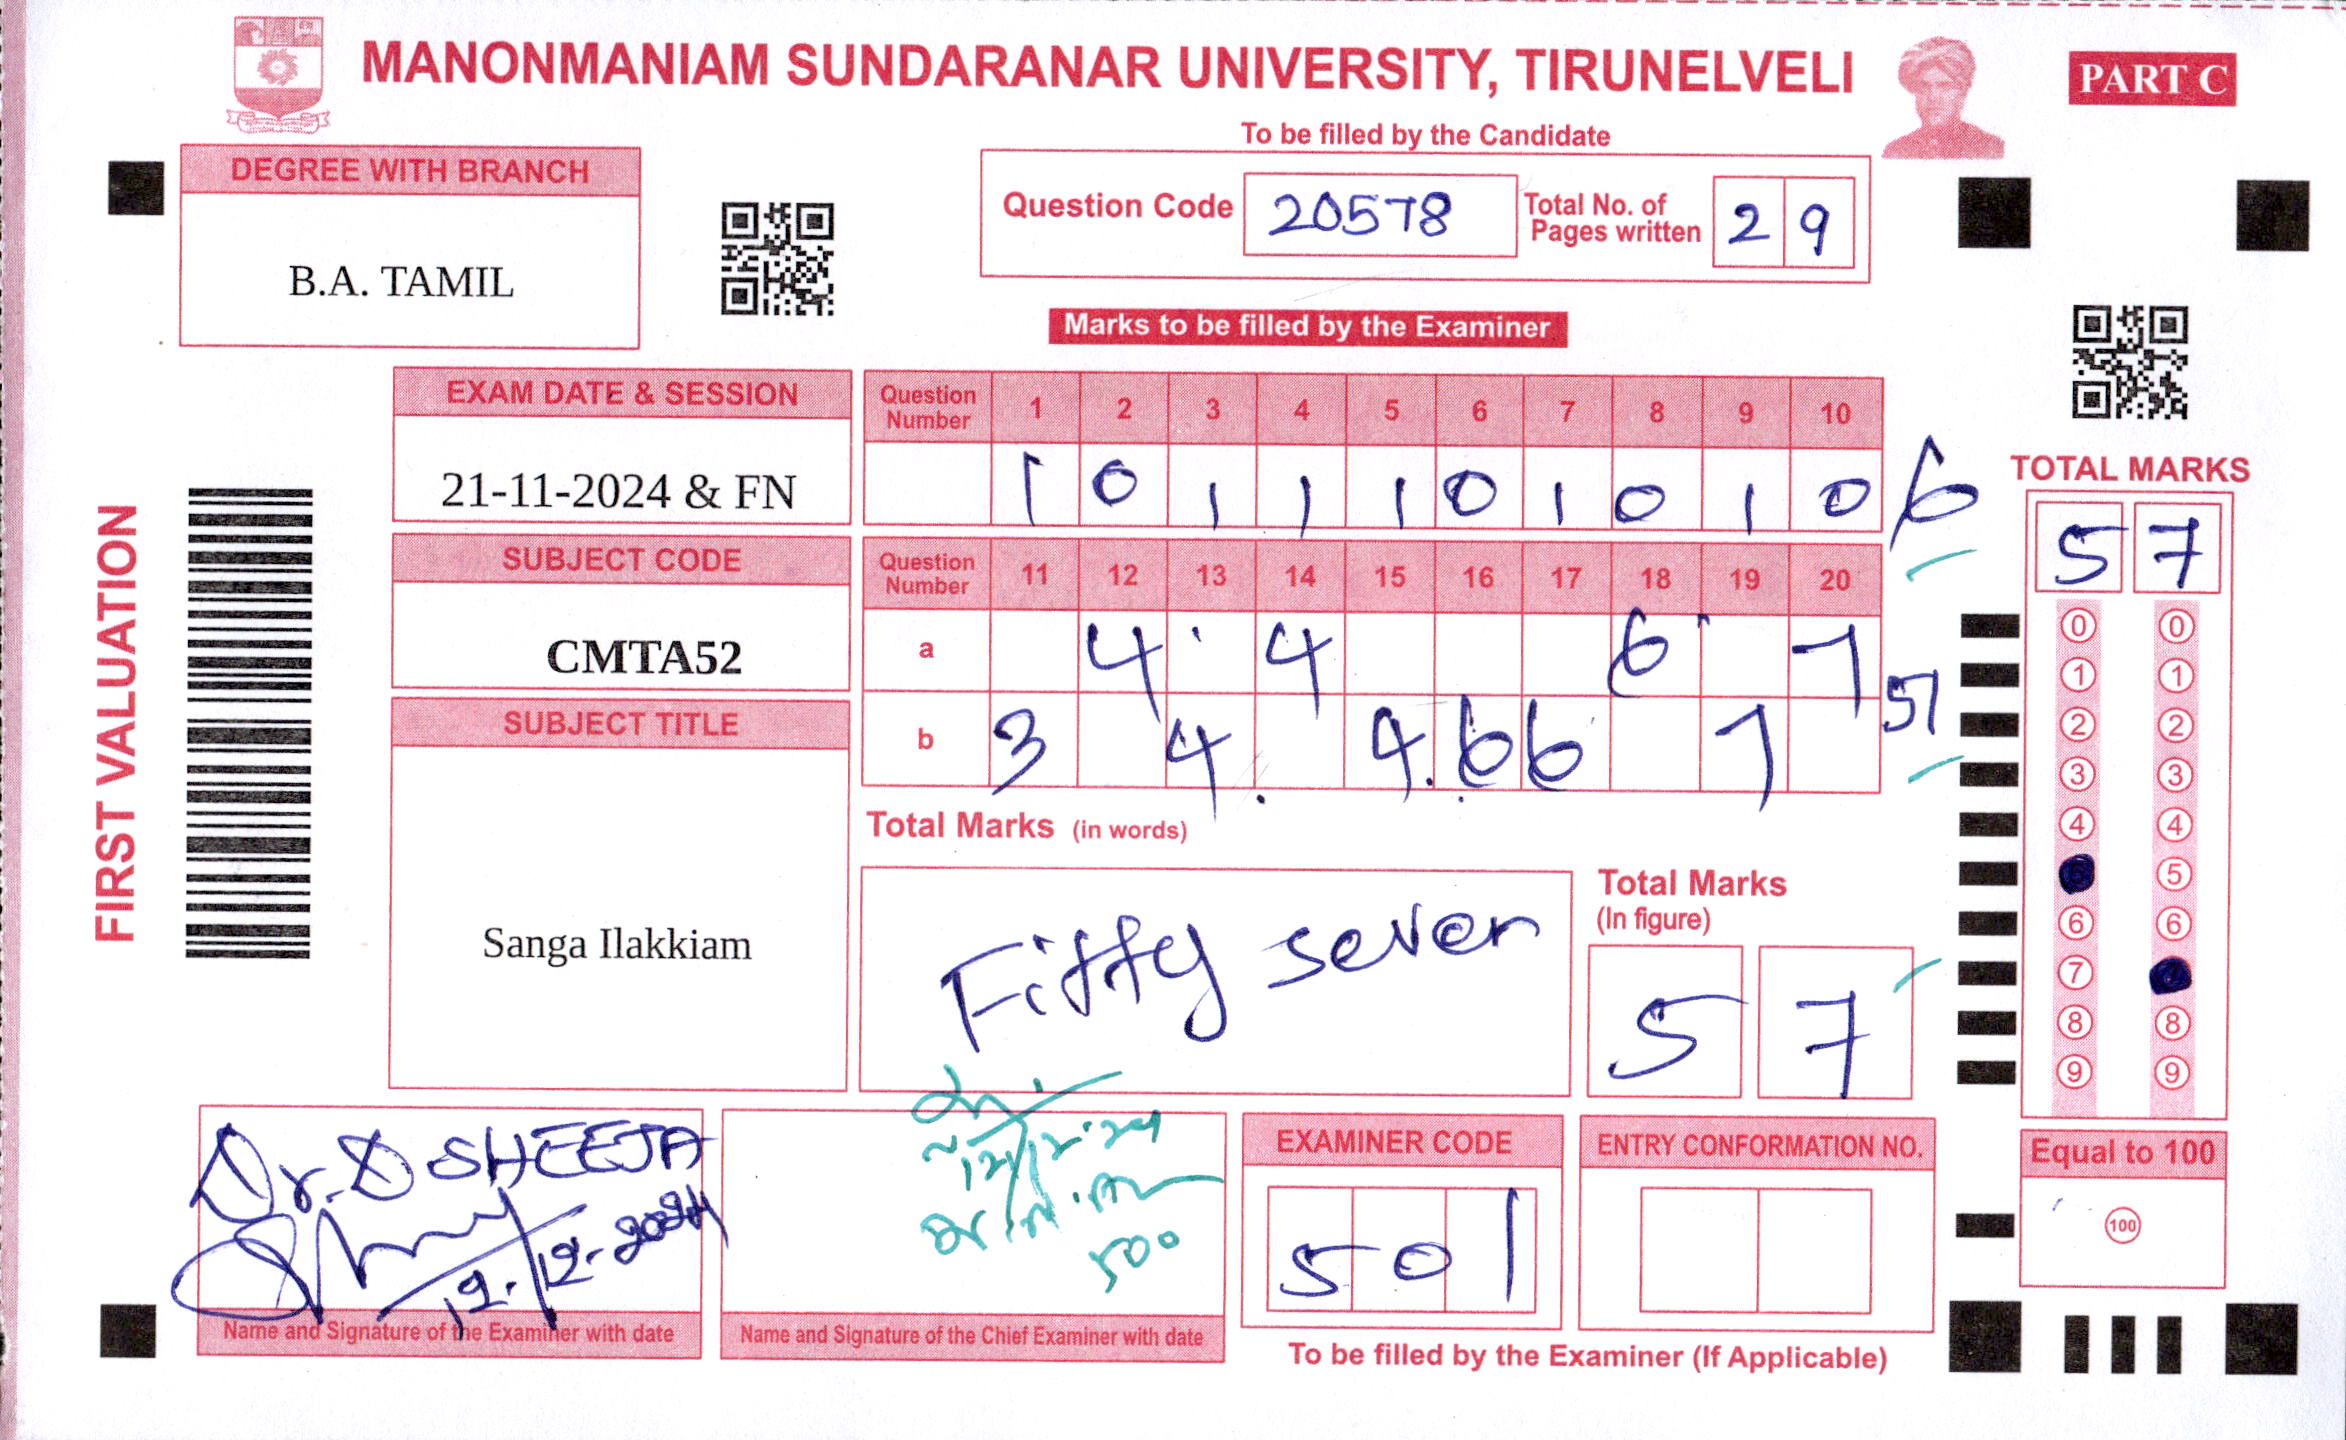 MANONMANIAM SUNDARANAR UNIVERSITY, TIRUNELVELI
PART C
To be filled by the Candidate
DEGREE WITH BRANCH
B.A. TAMIL
Question Code 20578 Total No. of Pages written 2 9
Marks to be filled by the Examiner
EXAM DATE & SESSION
21-11-2024 & FN
Question Number 1 2 3 4 5 6 7 8 9 10
1 0 1 1 1 0 1 0 1 0 6
SUBJECT CODE
CMTA52
Question Number 11 12 13 14 15 16 17 18 19 20
a 4 4 6 7
b 3 4 4 6 6 7
51
SUBJECT TITLE
Sanga Ilakkiam
FIRST VALUATION
Total Marks (in words)
Fifty seven
Total Marks (In figure)
5 7
TOTAL MARKS
5 7
0 0
1 1
2 2
3 3
4 4
5
6 6
7
8 8
9 9
Equal to 100
100
Dr. D SHEEJA
12.12.2024
Name and Signature of the Examiner with date
12/12.24
500
Name and Signature of the Chief Examiner with date
EXAMINER CODE
5 0 1
ENTRY CONFORMATION NO.
To be filled by the Examiner (If Applicable)